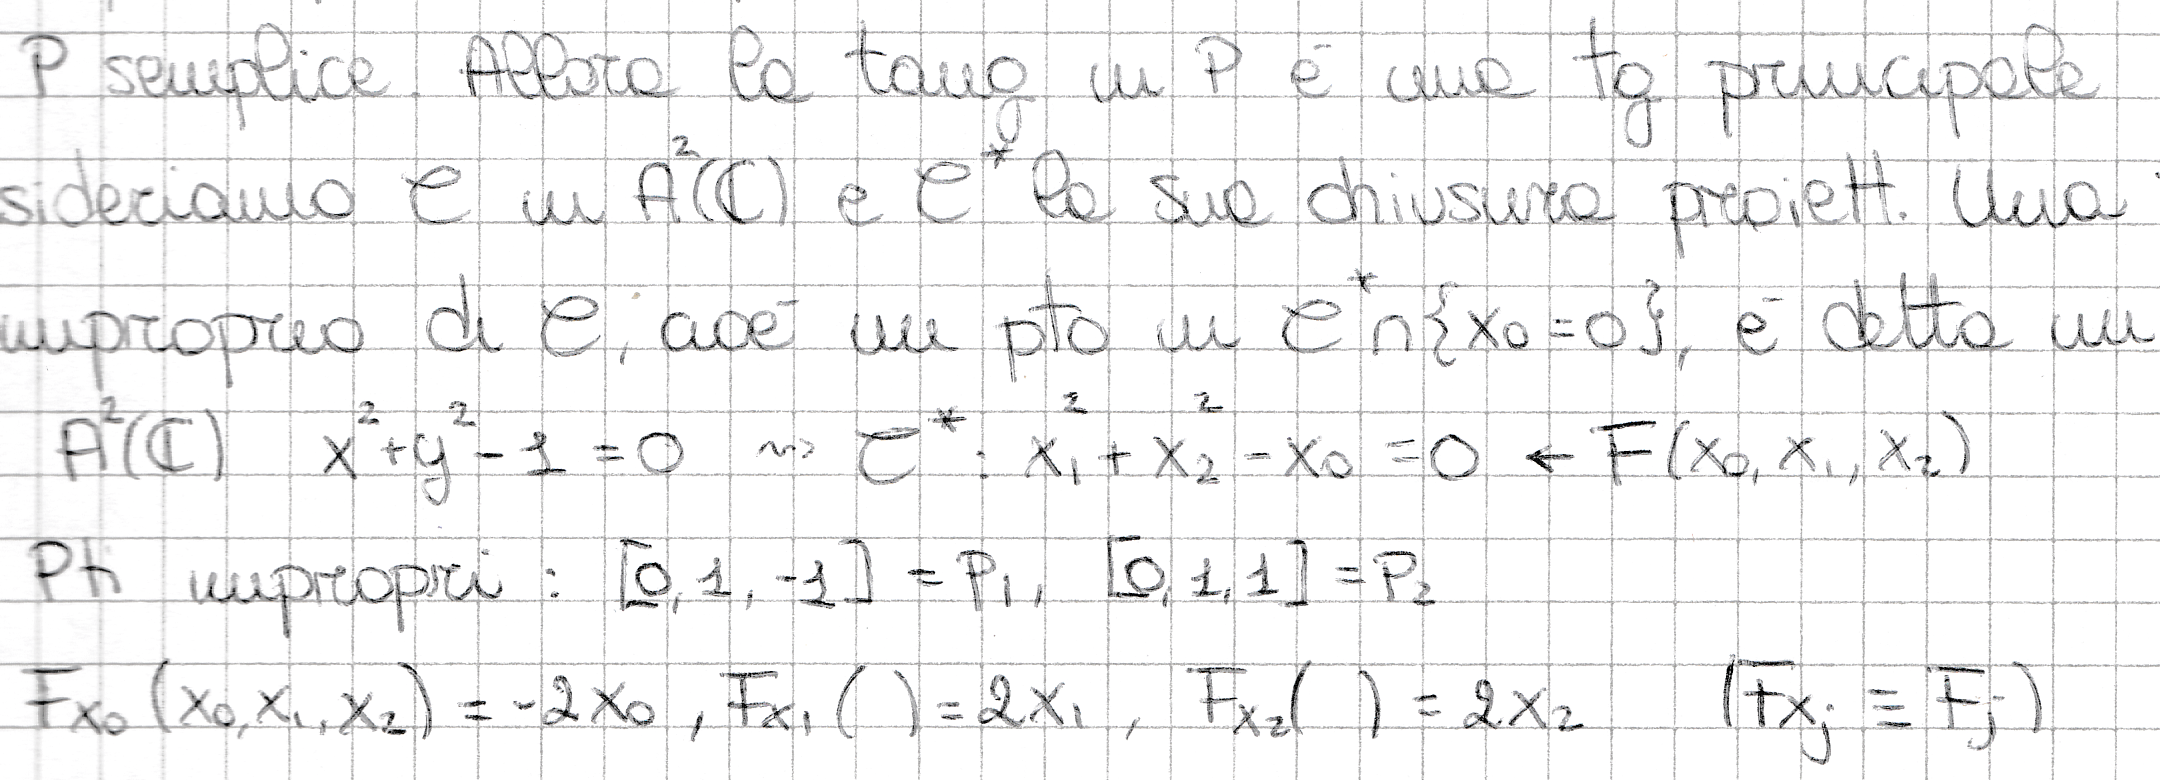 P semplice. Allora la tang in P è una tg principale
sideriamo C in A²(ℂ) e C* la sua chiusura proiett. Una
improprio di C, cioè un pto in C*∩{x₀=0}, è detta un
A²(ℂ) x²+y²-1=0 ⇝ C*: x₁²+x₂²-x₀=0 ← F(x₀,x₁,x₂)
Pti impropri: [0,1,-1]=P₁, [0,1,1]=P₂
Fx₀(x₀,x₁,x₂)=-2x₀, Fx₁( )=2x₁, Fx₂( )=2x₂ (Fxⱼ ≡ Fⱼ)